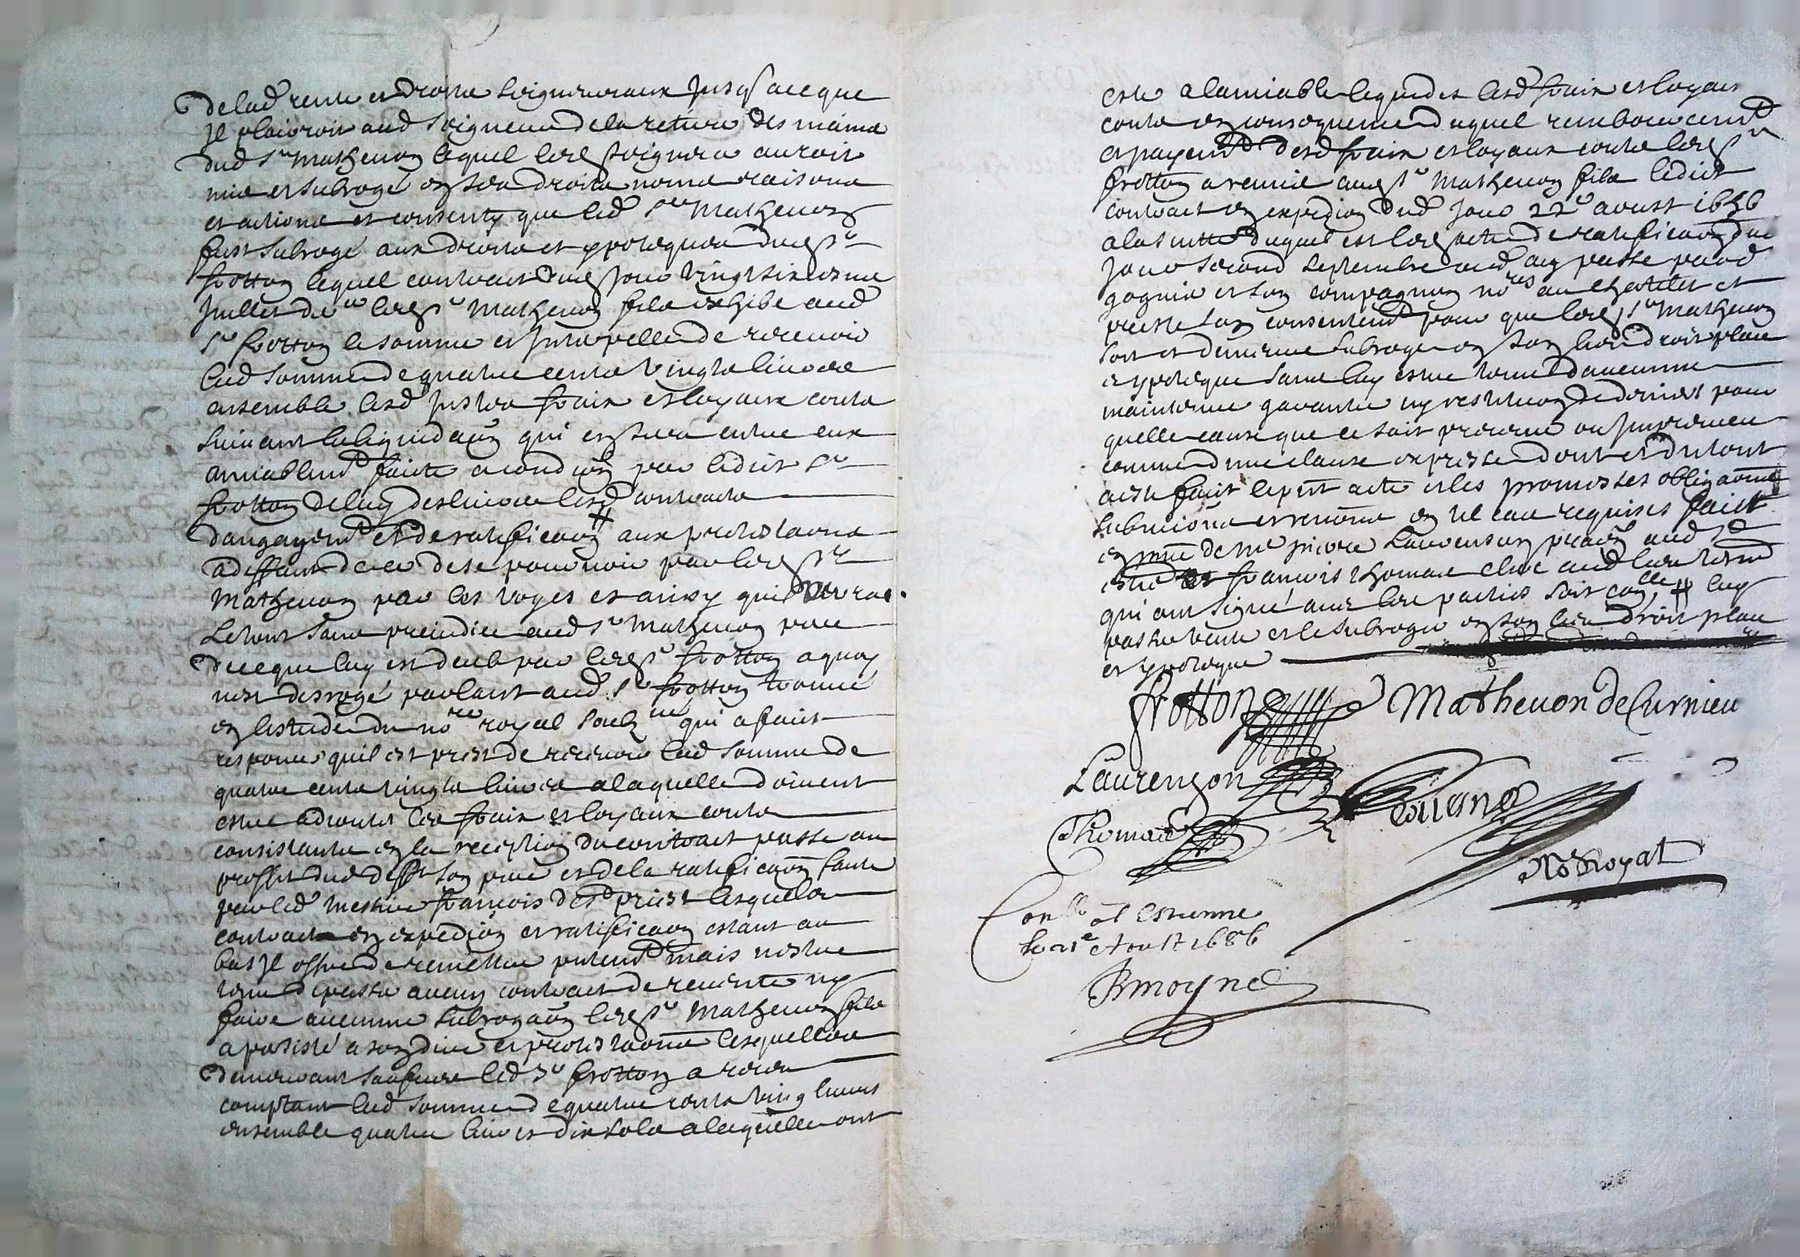 delad rente et droits seigneuriaux jusqu'a ce que
il plairoit aud seigneur de la retirer des mains
dud Sr Mathevon lequel led seigneur auroit
mis et subrogé en ses droits noms raisons
et actions et consenty que led Sr Mathevon
fust subrogé aux droits et ypoteques dud Sr
frotton lequel contract dud jour vingt sixiesme
Juillet der led Sr Mathevon fils exhibe aud
Sr frotton la somme et Interpelle de recevoir
lad somme de quatre cents vingts livres
ensemble lesd justes frais et loyaux couts
suivant la liquidaon qui en sera entre eux
amiablemt faite a condion par ledict Sr
frotton de luy deslivrer lesd contracts
dangagemt et de ratificaon # aux protestaons
a deffaut de ce de se pourvoir par led Sr
Mathevon par les voyes et ainsy quil verra.
Le tout sans prejudice aud Sr Mathevon pere
de ce que luy est deub par led Sr frotton a quoy
nest desrogé parlant aud Sr frotton trouvé
en lestude du nore royal soubne qui a fait
responce quil est prest de recevoir lad somme de
quatre cents vingts livres a laquelle doivent
estre adjoutés les frais et loyaux couts
consistants en la reception du contract passe au
proffit dud defft son pere et de la ratificaon faite
par led messire francois de St priest lesquels
contract en expedion et ratificaon estant au
bas il offre de remettre presentemt mais nestre
tenu de passer aucun contract de revente ny
faire aucune subrogaon led Sr Mathevon fils
a persisté a son dire et protestaons lesquelles
demeurant sauves led Sr frotton a receu
comptant lad somme de quatre cents vingt livres
ensemble quatre livres dix sols a laquelle ont
esté a lamiable liquides lesd frais et loyaux
couts en consequence duquel remboursemt
et payemt desd frais et loyaux couts led Sr
frotton a remis aud Sr Mathevon fils ledict
contract en expedion dud jour 22e aoust 1656
a la suitte duquel est led acte de ratificaon du
jour second septembre aud an passe par
gognie et son compagnon nores au chatelet et
preste son consentemt pour que led Sr Mathevon
soit et demeure subrogé en son lieu droit place
et ypoteque sans luy estre tenu daucune
maintenue garantie ny restitution de deniers pour
quelle cause que ce soit preveue ou Impreveue
comme dune clause expresse dont et du tout
a esté fait le pnt acte et les promesses obligaons
submissions et renons en tel cas requises fait
en pnce de me pierre Laurenson praen aud St
estne et francois thomas clerc aud lieu tesmoings
qui ont signé avec les parties soit conlle # luy
passer vente et le subroger en son lieu droit place
et ypoteque
frotton Mathevon de Curnieu
Laurenson
Thomas
No Royal
Conllé a St Estienne
le 21e Aoust 1686
Bmoyne